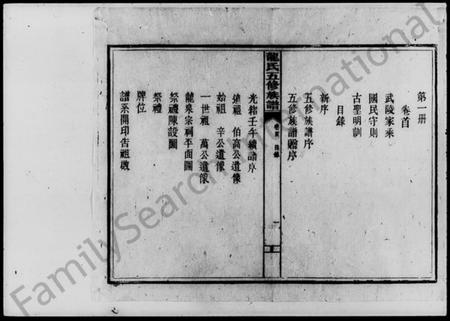 第一册
卷首
武陵家乘
國民守則
古聖明訓
目錄
新序
五修族譜序
五修族譜贈序
龍氏五修族譜
卷首 目錄
一
光緒壬午續譜序
始祖 辛公遺像
一世祖 萬公遺像
龍泉宗祠平面圖
祭禮陳設圖
祭禮
牌位
FamilySearch International